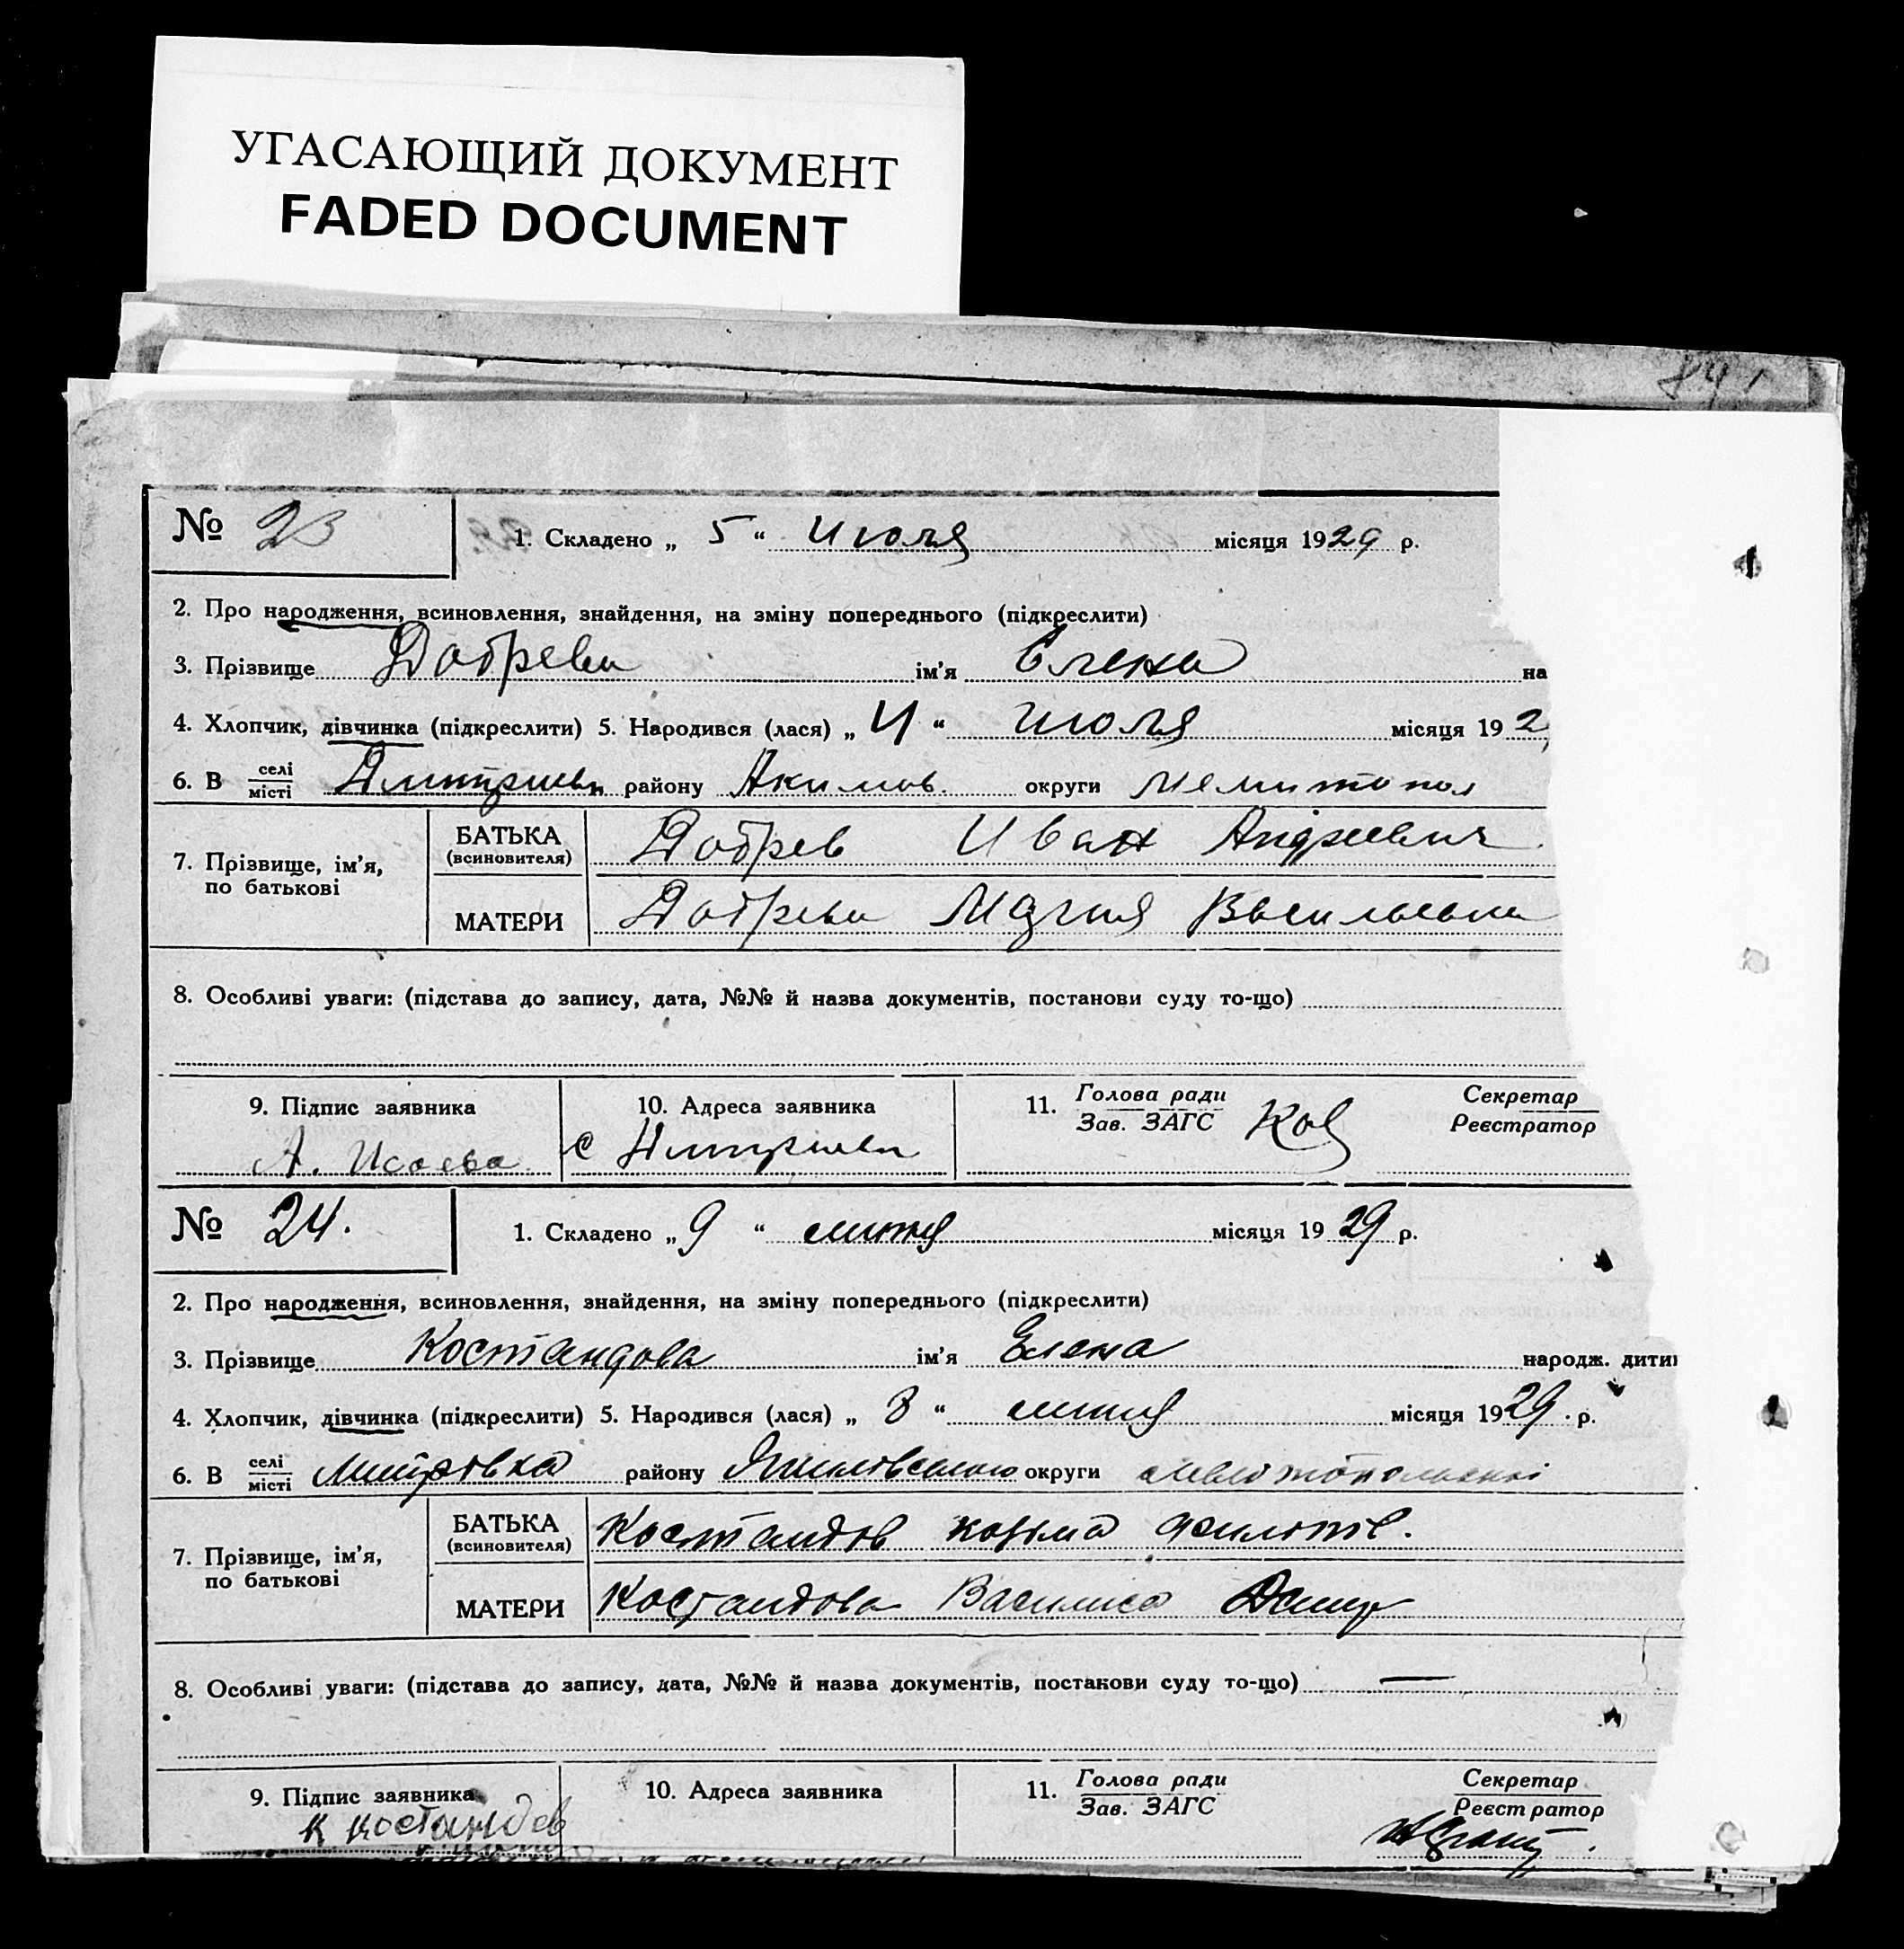 УГАСАЮЩИЙ ДОКУМЕНТ
FADED DOCUMENT
841
№ 23
1. Складено „ 5 “ Июля місяця 1929 р.
2. Про народження, всиновлення, знайдення, на зміну попереднього (підкреслити)
3. Прізвище Добрева ім’я Елена на
4. Хлопчик, дівчинка (підкреслити) 5. Народився (лася) „ 4 “ июля місяця 192
6. В селі/місті Дмитриевк району Акимов. округи Мелитопол
7. Прізвище, ім’я, по батькові
БАТЬКА (всиновителя) Добрев Иван Андреевич
МАТЕРИ Добрева Мария Васильевна
8. Особливі уваги: (підстава до запису, дата, №№ й назва документів, постанови суду то-що)
9. Підпис заявника 10. Адреса заявника 11. Голова ради/Зав. ЗАГС Секретар/Реєстратор
А. Исаева с Дмитриевк
№ 24.
1. Складено „ 9 “ липня місяця 1929 р.
2. Про народження, всиновлення, знайдення, на зміну попереднього (підкреслити)
3. Прізвище Костандова ім’я Елена народж. дити
4. Хлопчик, дівчинка (підкреслити) 5. Народився (лася) „ 8 “ липня місяця 1929 . р.
6. В селі/місті Митровка району Якимовського округи Мелітопольскої
7. Прізвище, ім’я, по батькові
БАТЬКА (всиновителя) Костандов козьма филипов.
МАТЕРИ Костандова Василиса
8. Особливі уваги: (підстава до запису, дата, №№ й назва документів, постанови суду то-що) —
9. Підпис заявника 10. Адреса заявника 11. Голова ради/Зав. ЗАГС Секретар/Реєстратор
К Костандов